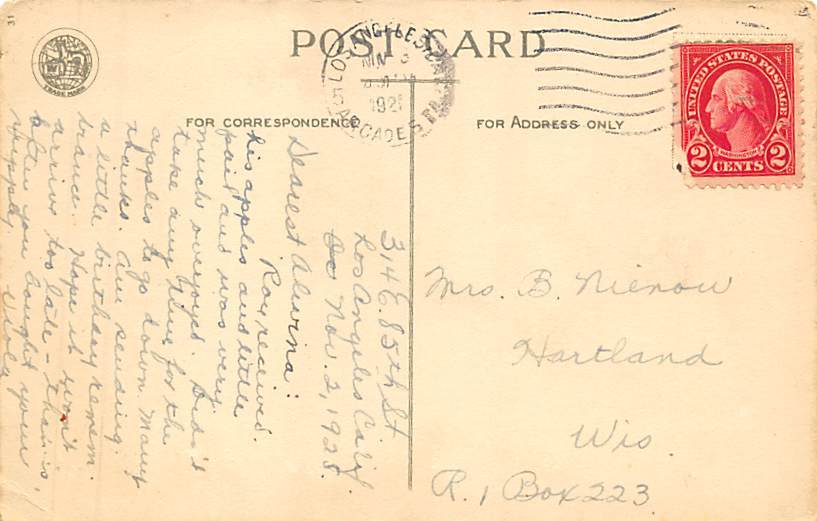 POST CARD
TRADE MARK
FOR CORRESPONDENCE
FOR ADDRESS ONLY
LOS ANGELES
NOV 3
192
ARCADE STA
UNITED STATES POSTAGE
WASHINGTON
2 CENTS 2
314 E. 85th St
Los Angeles Calif.
Oc Nov. 2, 1928.
Dearest Alwina:
Ray received
his apples and little
pail and was very
much overjoyed. Didn't
take any time for the
apples to go down. Many
thanks. Am sending
a little birthday remem-
brance. Hope it won't
arrive too late - that is,
after you bought your
supply. Viola
Mrs. B. Nienow
Hartland
Wis.
R. 1 Box 223
31